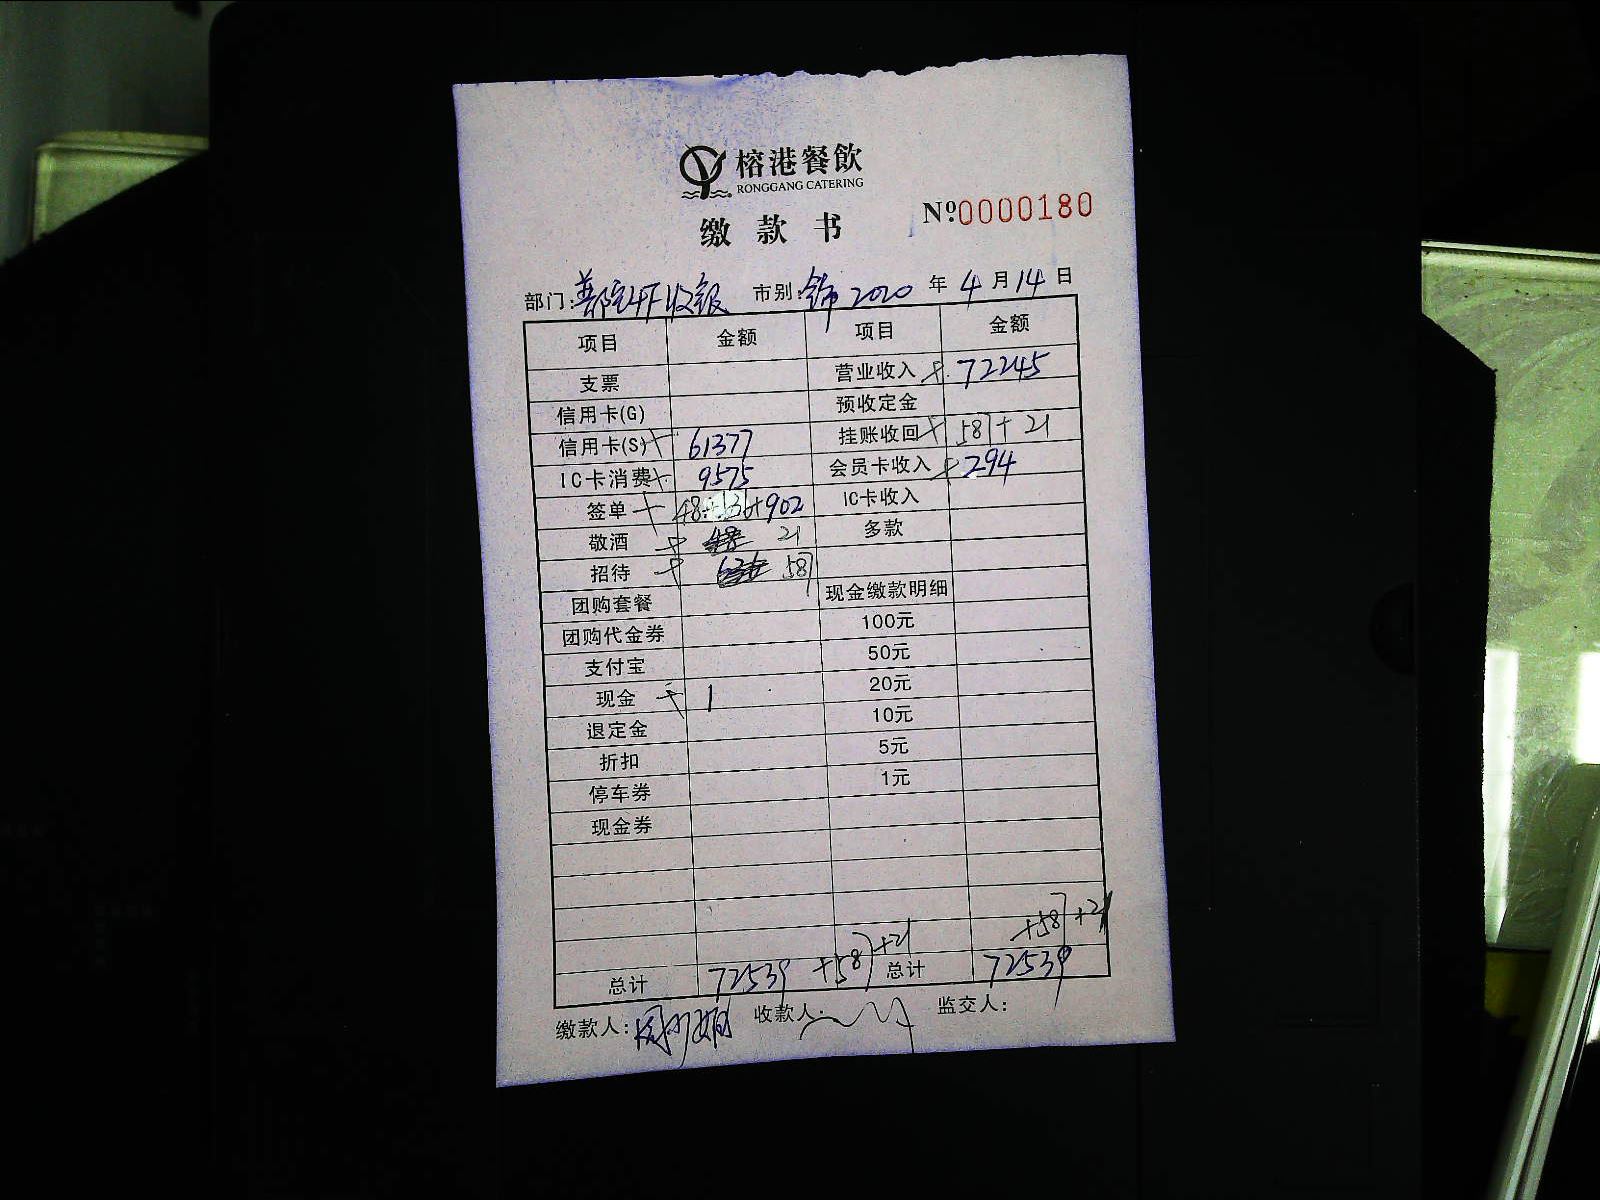 榕港餐飲
RONGGANG CATERING
缴款书
Nº 0000180
部门: 市别: 2020 年 4 月 14 日
项目 金额 项目 金额
支票 营业收入 72245
信用卡(G) 预收定金
信用卡(S) 61377 挂账收回 587+21
IC卡消费 9575 会员卡收入 294
签单 48+636+902 IC卡收入
敬酒 21 多款
招待 587
团购套餐 现金缴款明细
团购代金券 100元
支付宝 50元
现金 1 20元
退定金 10元
折扣 5元
停车券 1元
现金券
总计 72539 +587+21 总计 72539 +587+21
缴款人: 收款人: 监交人: